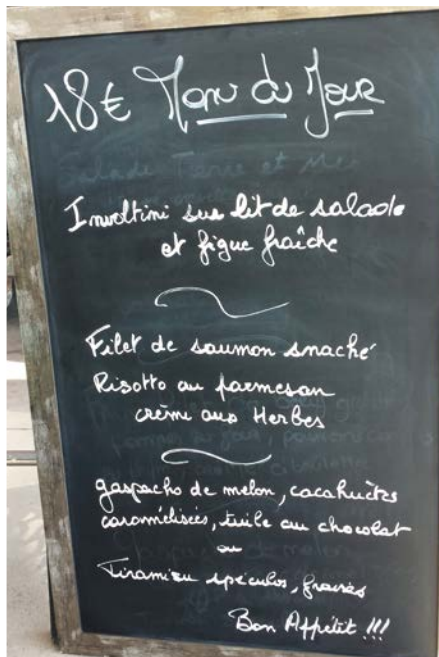 18€ Menu du Jour
Involtini sur lit de salade
et figue fraîche
Filet de saumon snacké
Risotto au parmesan
crème aux Herbes
gaspacho de melon, cacahuètes
caramélisées, tuile au chocolat
ou
Tiramisu spéculos, fraises
Bon Appétit !!!